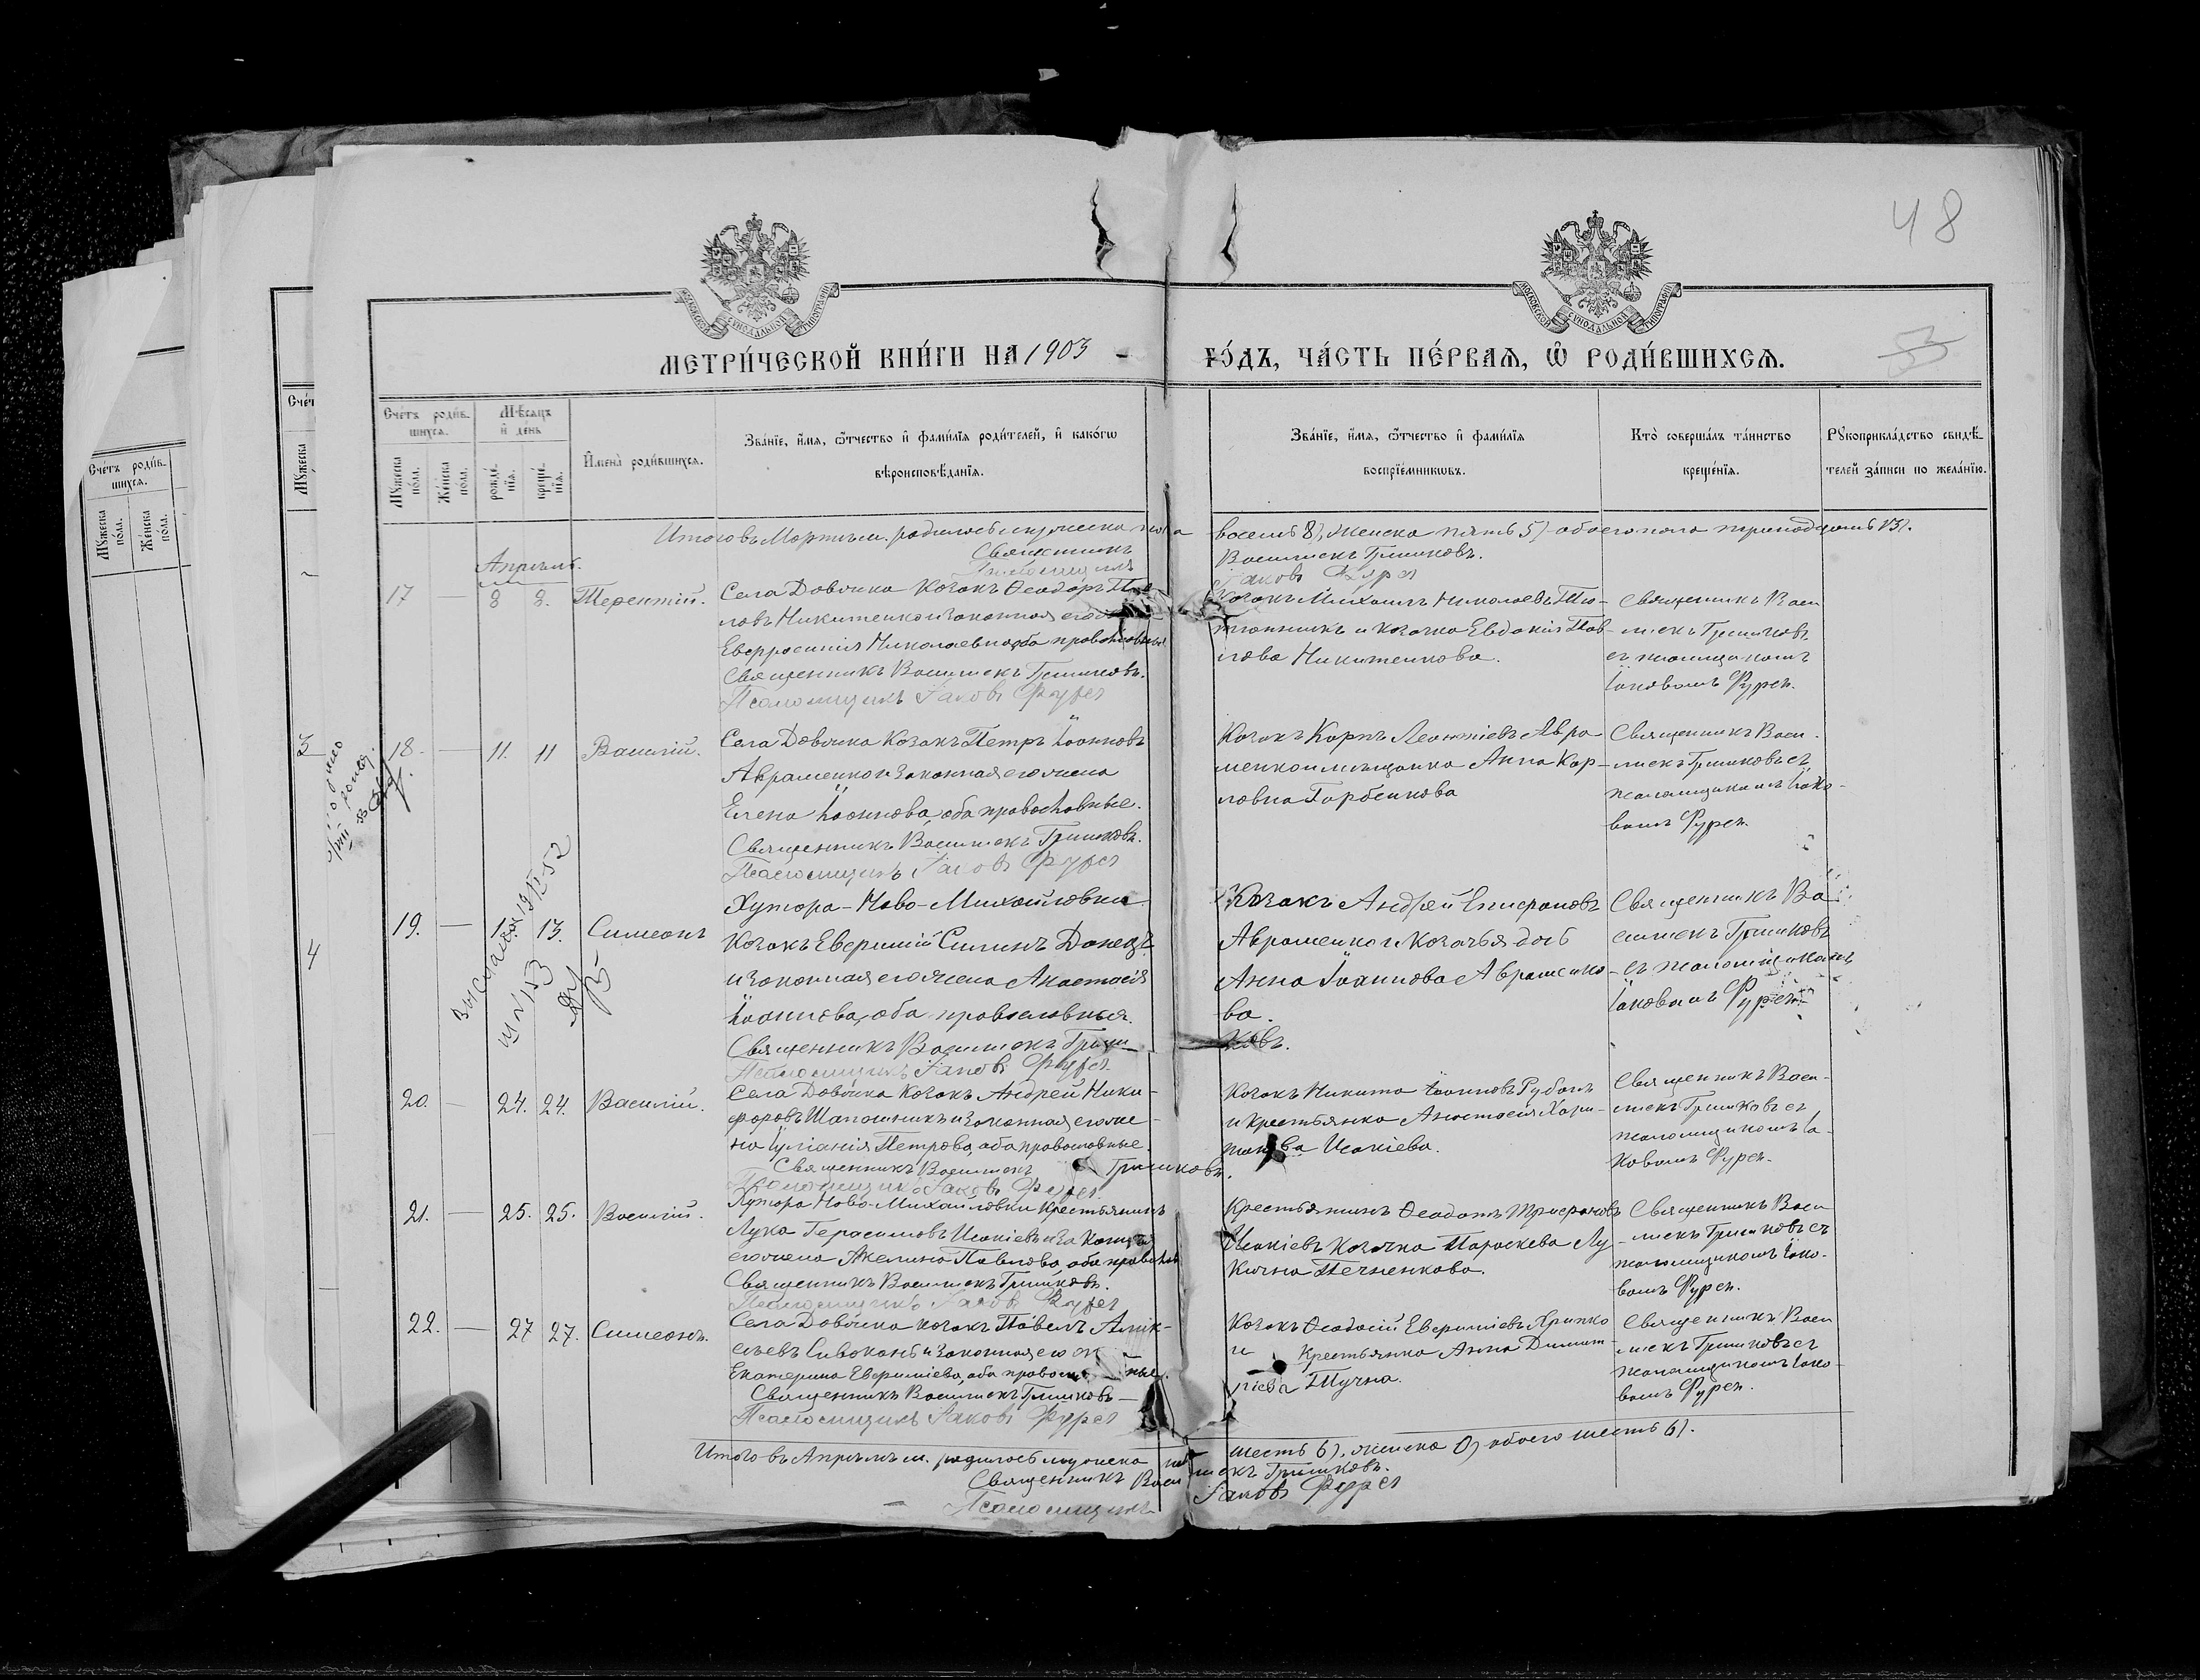 48
53
МЕТРИ́ЧЕСКОЙ КНИ́ГИ НА 1903 - ГО́ДЪ, ЧА́СТЬ ПЕ́РВАЯ, Ѿ РОДИ́ВШИХСЯ.
Сче́тъ роди́вшихся.
Мꙋжеска по́ла.
Же́нска по́ла.
Мѣсяцъ и де́нь
рожде́нїя.
креще́нїя.
Имена̀ роди́вшихся.
Зва́нїе, и́мя, ѻ́тчество и фами́лїя роди́телей, и како́гѡ
вѣроисповѣ́данїя.
Зва́нїе, и́мя, ѻ́тчество и фами́лїя
воспрїе́мникѡвъ.
Кто̀ соверша́лъ та́инство
креще́нїя.
Рꙋкоприкла́дство свидѣ́телей за́писи по жела́нїю.
Итого въ Мартѣ м. родилось мужеска пола восемь 8), женска пять 5) обоего пола тринадцать 13).
Священникъ Василискъ Гришковъ.
Псаломщикъ Іаковъ Фурса
Апрѣль.
17 — 8 8. Терентій.
Села Довжика Козакъ Ѳеодоръ Пав-
ловъ Никитенко и законная его
Евфросинія Николаевна, оба православные
Священникъ Василискъ Гришковъ.
Псаломщикъ Іаковъ Фурса
Козакъ Михаилъ Николаевъ Тю-
тюнникъ и козачка Евдокія Пав-
лова Никитенкова.
Священникъ Васи-
лискъ Гришковъ
съ псаломщикомъ
Іаковомъ Фурсе.
18. — 11. 11 Василій.
Села Довжика Козакъ Петръ Іоанновъ
Авраменко и законная его жена
Елена Іоаннова, оба православные.
Священникъ Василискъ Гришковъ.
Псаломщикъ Іаковъ Фурса
Козакъ Карпъ Леонтіевъ Авра-
менко и мѣщанка Анна Кар-
повна Горбенкова
Священникъ Васи-
лискъ Гришковъ съ
псаломщикомъ Іако-
вомъ Фурсе.
19. — 13. Симеонъ
Хутора-Ново-Михайловки
Козакъ Евфимій Силинъ Донецъ
и законная его жена Анастасія
Іоаннова, оба православные.
Священникъ Василискъ Гриш-
ковъ.
Псаломщикъ Іаковъ Фурса.
Козакъ Андрей Епифановъ
Авраменко и Козачья дочь
Анна Іоаннова Авраменко-
ва.
Священникъ Ва-
силискъ Гришковъ
съ псаломщикомъ
Іаковомъ Фурсе.
20. — 24. 24. Василій.
Села Довжика Козакъ Андрей Ники-
форовъ Шапошникъ и законная его же-
на Іуліанія Петрова, оба православные.
Священникъ Василискъ Гришковъ.
Псаломщикъ Іаковъ Фурса.
Козакъ Никита Іоанновъ Рубанъ
и крестьянка Анастасія Хари-
тонова Исакіева.
Священникъ Васи-
лискъ Гришковъ съ
псаломщикомъ Іа-
ковомъ Фурсе.
21. — 25. 25. Василій.
Хутора Ново-Михайловки Крестьянинъ
Лука Герасимовъ Исакіевъ и законная
его жена Акелина Павлова, оба православ
Священникъ Василискъ Гришковъ.
Псаломщикъ Іаковъ Фурса
Крестьянинъ Ѳеодотъ Трифоновъ
Исакіевъ Козачка Параскева Лу-
кична Печненкова.
Священникъ Васи-
лискъ Гришковъ съ
псаломщикомъ Іако-
вомъ Фурсе.
22. — 27 27. Симеонъ.
Села Довжика козакъ Павелъ Алек-
сѣевъ Сивоконь и законная его
Екатерина Евфиміева, оба православные.
Священникъ Василискъ Гришковъ —
Псаломщикъ Іаковъ Фурса
Козакъ Ѳеодосій Евфиміевъ Хрипко
и Крестьянка Анна Димит-
ріева Тучна.
Священникъ Васи-
лискъ Гришковъ съ
псаломщикомъ Іако-
вомъ Фурсе.
Итого въ Апрѣлѣ м. родилось мужеска пола шесть 6), женска 0) обоего шесть 6).
Священникъ Василискъ Гришковъ.
Псаломщикъ Іаковъ Фурса